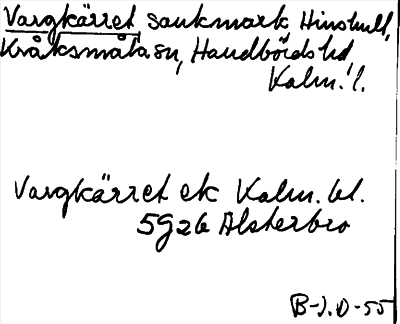 Vargkärret sankmark Hinshult,
Kråksmåla sn, Handbörds hd
Kalm. l.
Vargkärret ek Kalm. bl.
5G2b Alsterbro
B-J.O-55